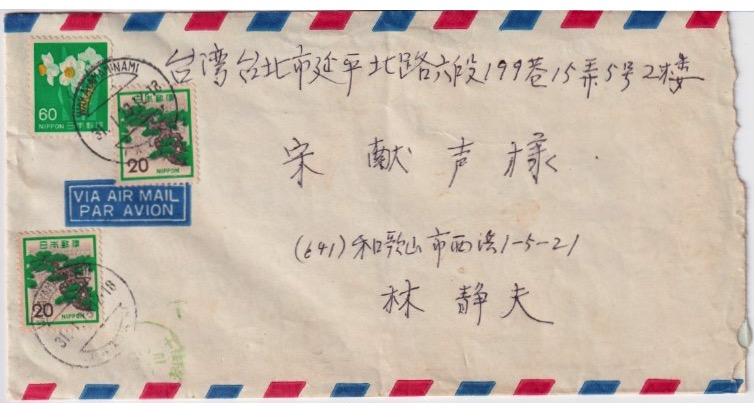 台湾台北市延平北路六段199巷15弄5号2楼
宋献声様
(641)和歌山市西浜1-5-21
林静夫
60
NIPPON 日本郵便
日本郵便
20
NIPPON
VIA AIR MAIL
PAR AVION
日本郵便
20
NIPPON